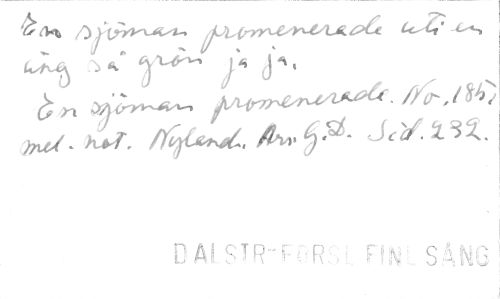 En sjöman promenerade uti en
äng så grön ja ja.
En sjöman promenerade. No. 185,
mel. not. Nyland. G.D. Sid. 232.
DALSTR-FORSL FINL SÅNG